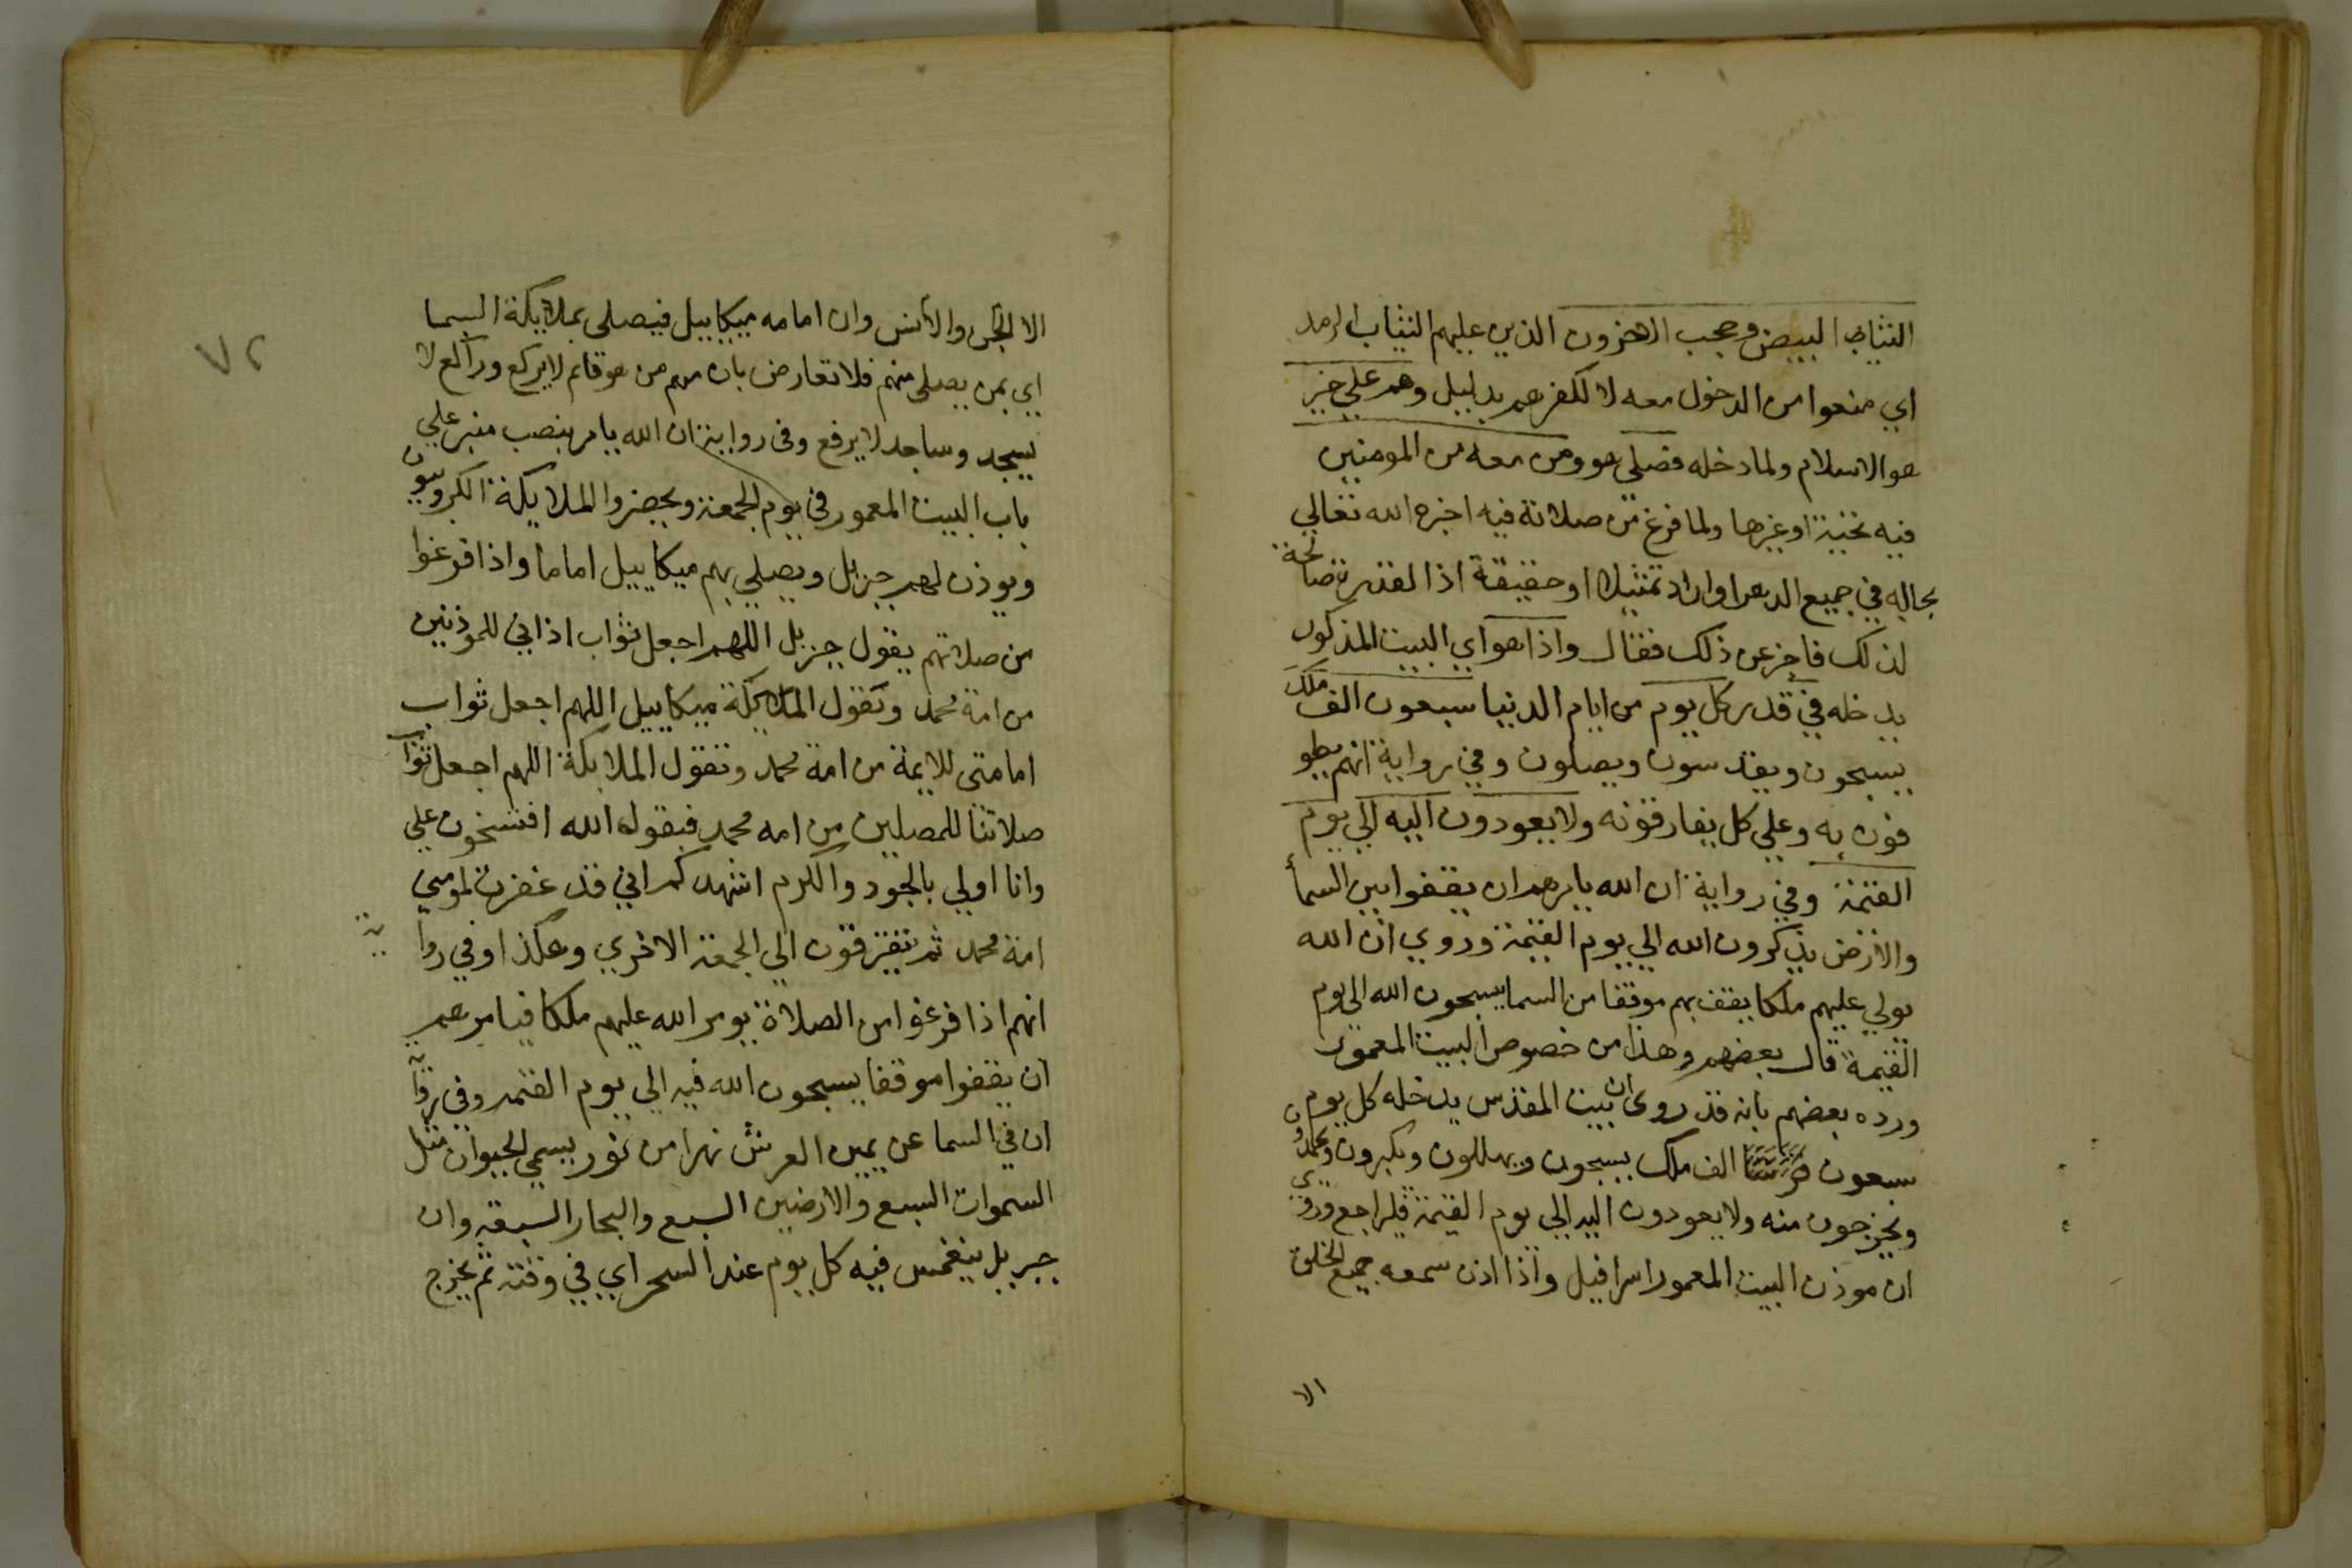 الثياب البيض وحجب الاخرون الذين عليهم الثياب الرمد
اي منعوا من الدخول معه لا لكفرهم بدليل وهم على خير
هو الاسلام ولما دخله فصلى هو ومن معه من المومنين
فيه تحية اوغيرها ولما فرغ من صلاته فيه اخبره الله تعالي
بحاله في جميع الدهر اواراد تمثيلا اوحقيقة اذا القدرة صالحة
لذلك فاخبر عن ذلك فقال واذا هو اي البيت المذكور
يدخله في قدر كل يوم من ايام الدنيا سبعون الف ملك
يسبحون ويقدسون ويصلون وفي رواية انهم يطو
فون به وعلي كل يفارقونه ولا يعودون اليه الي يوم
القيمة وفي رواية ان الله يامرهم ان يقفوا بين السما
والارض يذكرون الله الي يوم القيمة وروي ان الله
يولي عليهم ملكا يقف بهم موقفا من السما يسبحون الله الي يوم
القيمة قال بعضهم وهذا من خصوص البيت المعمور
ورده بعضهم بانه قد روى ان بيت المقدس يدخله كل يوم
سبعون الف ملك يسبحون ويهللون ويكبرون ويحمدون
ويخرجون منه ولا يعودون اليه الي يوم القيمة فليراجع وروي
ان موذن البيت المعمور اسرافيل واذا اذن سمعه جميع الخلق
الا
٧٢
الا الجن والانس وان امامه ميكاييل فيصلى بملايكة السما
اي بمن يصلى منهم فلا تعارض بان منهم من هو قايم لا يركع وراكع لا
يسجد وساجد لا يرفع وفى رواية ان الله يامر بنصب منبر علي
باب البيت المعمور في يوم الجمعة ويحضروا الملايكة الكروبيون
ويوذن لهم جبريل ويصلي بهم ميكاييل اماما واذا فرغوا
من صلاتهم يقول جبريل اللهم اجعل ثواب اذاني للموذنين
من امة محمد وتقول الملايكة ميكاييل اللهم اجعل ثواب
امامتى للايمة من امة محمد وتقول الملايكة اللهم اجعل ثواب
صلاتنا للمصلين من امه محمد فيقول الله افتسخون علي
وانا اولي بالجود والكرم اشهدكم اني قد غفرت لمومني
امة محمد ثم يتفرقون الي الجمعة الاخري وهكذا وفي رواية
انهم اذا فرغوا من الصلاة يومر الله عليهم ملكا فيامرهم
ان يقفوا موقفا يسبحون الله فيه الي يوم القيمه وفي رواية
ان في السما عن يمين العرش نهرا من نور يسمي الحيوان مثل
السموات السبع والارضين السبع والبحار السبعه وان
جبريل ينغمس فيه كل يوم عند السحر اي في وقته ثم يخرج